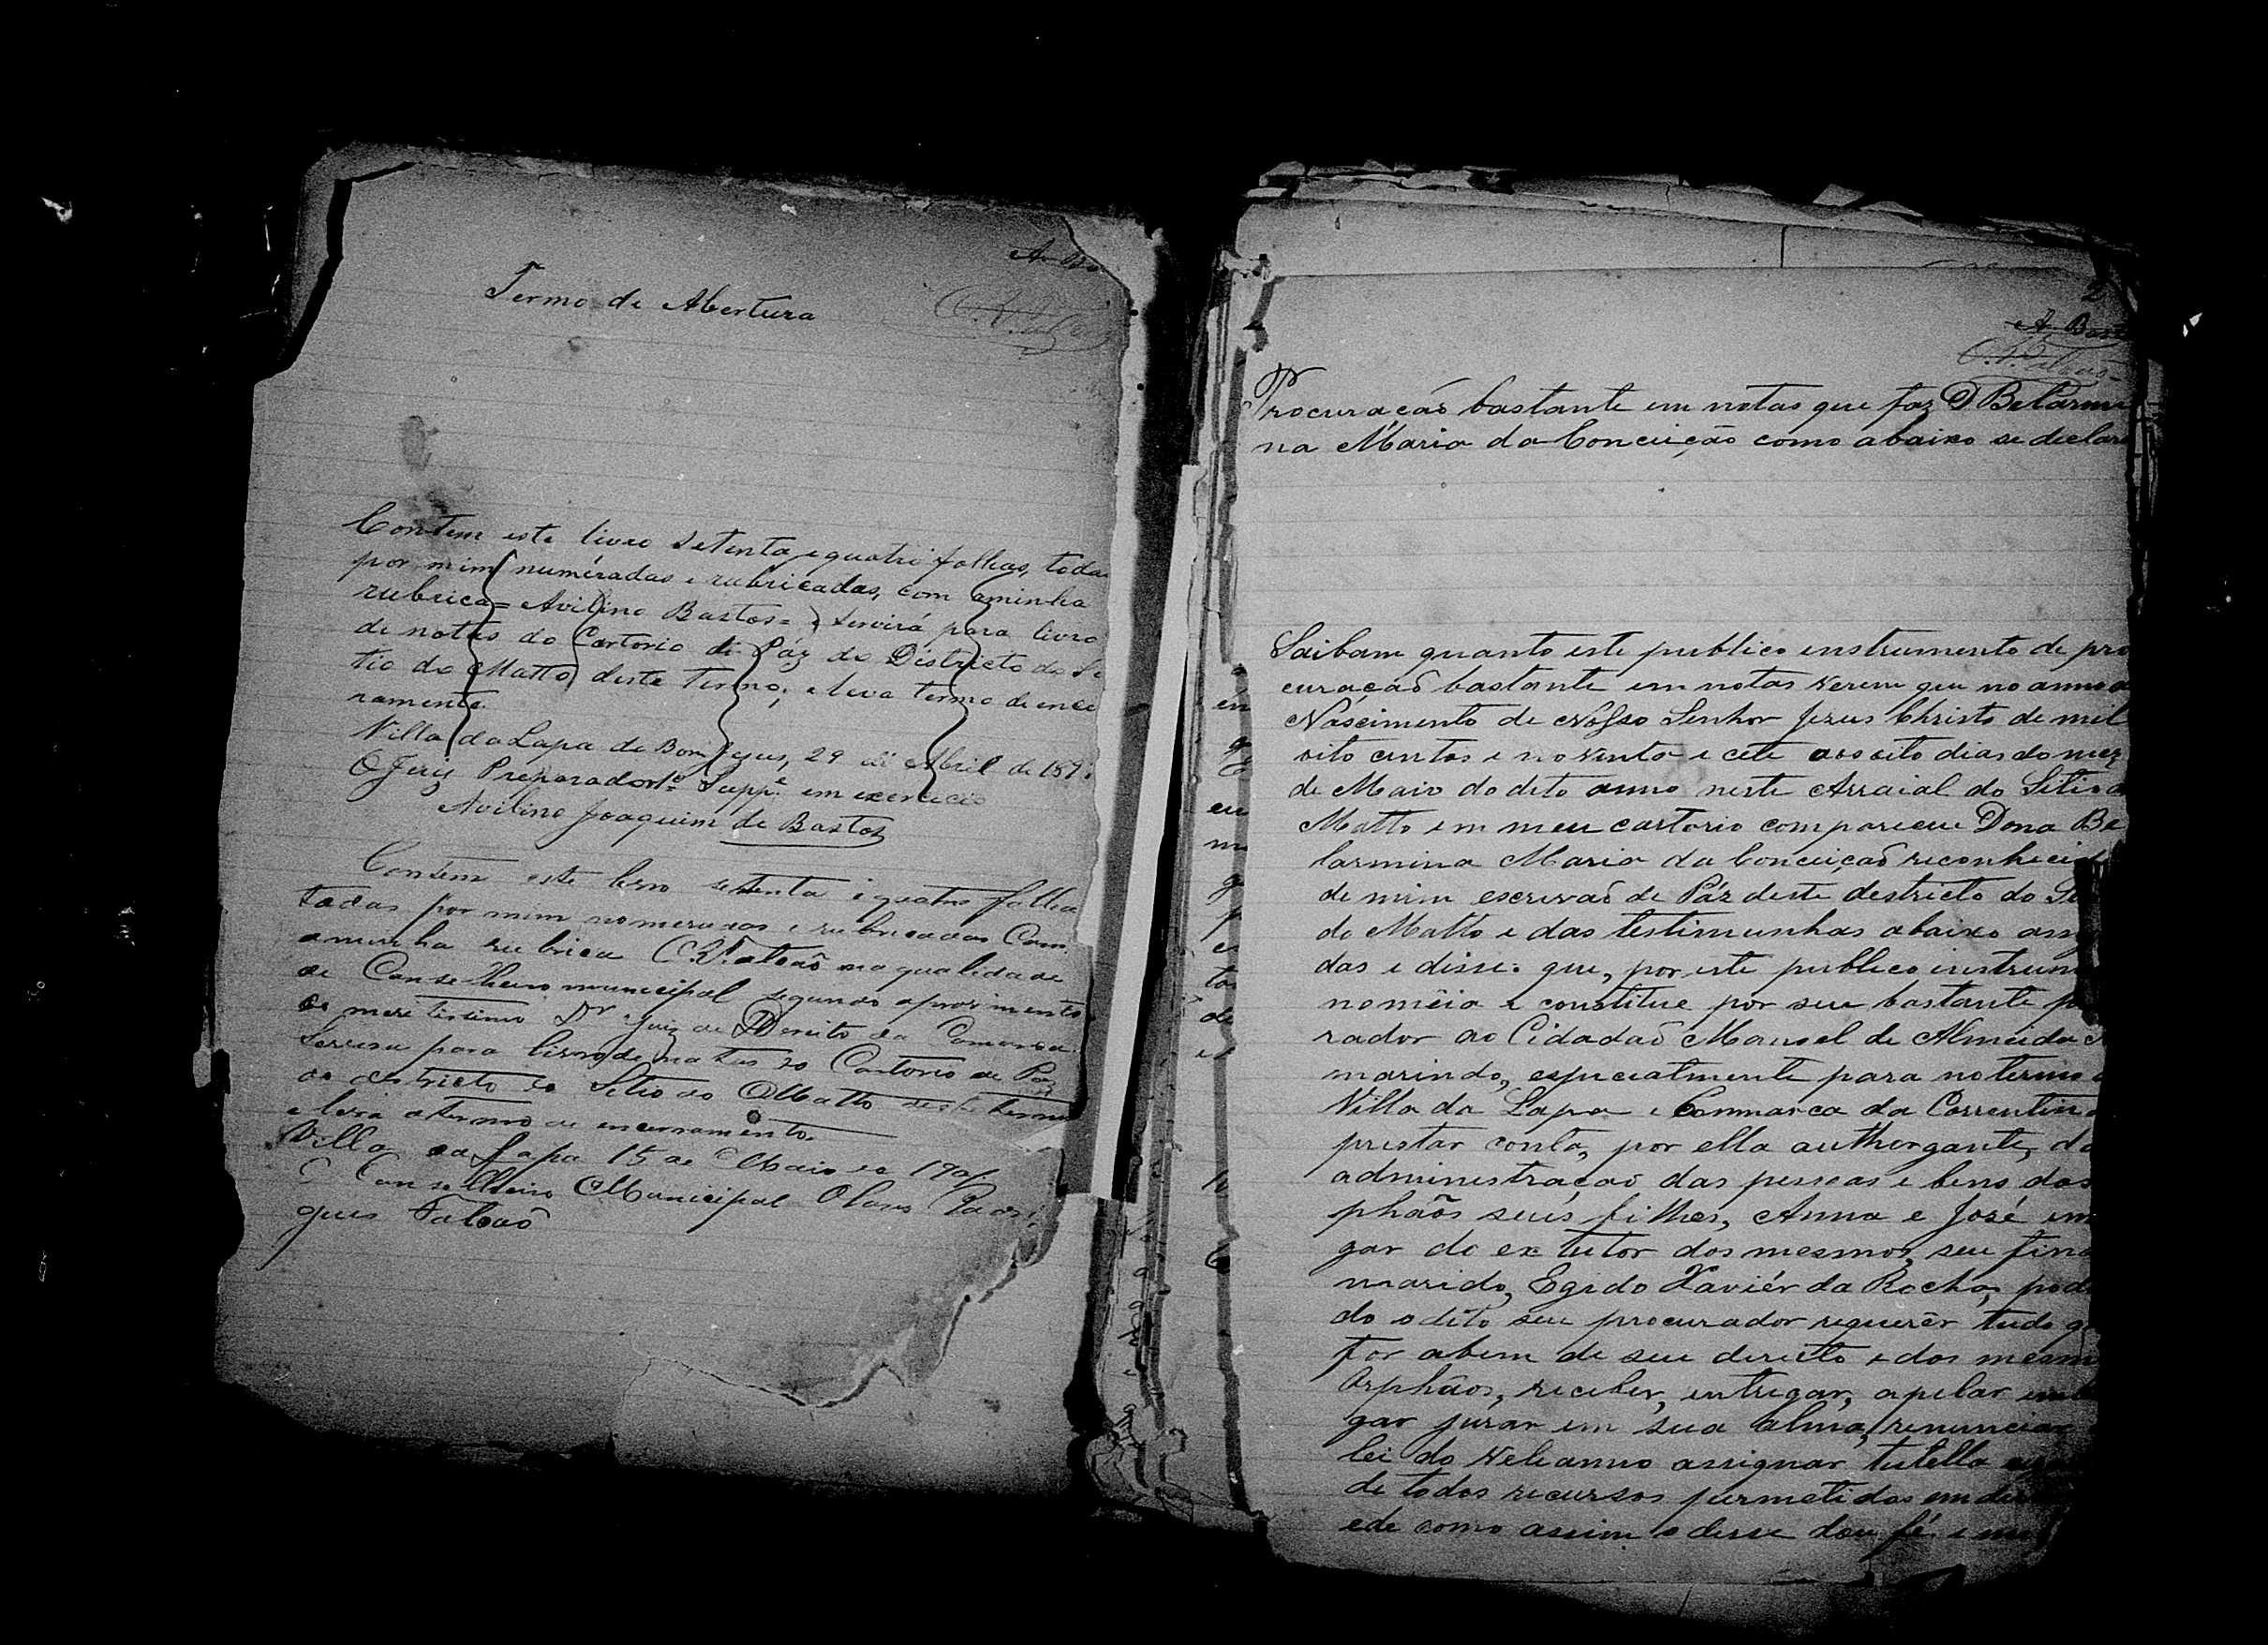 A. Ba
Termo de Abertura
Contem este livro setenta e quatro folhas, toda
por mim numéradas e rubricadas, com aminha
rubrica = Avilino Bastos = e servirá para livro
de notas do Cartorio de Páz do Districto do Si
tio do Matto deste termo; e leva termo de ence
ramento.
Villa da Lapa do Bom Jesus, 29 de Abril de 189
O Juiz Preparador 1º Suppe em exercicio
Avilino Joaquim de Bastos
Contem este livro setenta e quatro folha
todas por mim nomeradas e rubricadas Com
aminha rubrica O. R. Falcaõ na qualidade
de Conselheiro municipal segundo o provimento
do meretissimo Dr Juiz de Dereito da Comarca
Servira para livro de notas do Cartorio de Paz
do destricto do Sitio do Matto deste termo
e leva o termo de encerramento.
Villa da Lapa 15 de Maio de 190
O Conselheiro Municipal Olavo Rodri
gues Falcaõ
2
A. Bast
O. R. Falcaõ
Procuracaõ bastante em notas que faz D Belarmi
na Maria da Conceição como abaixo se declara
Saibam quanto este publico enstrumento de pro
curacaõ bastante em notas verem que no anno d
Nascimento de Nosso Senhor Jezus Christo de mil
oito centos e novento e cete aos oito dias do mez
de Maio do dito anno neste Arraial do Sitio d
Matto em meu cartorio compareceu Dona Be
larmina Maria da Conceiçaõ reconhecid
de mim escrivaõ de Páz deste destricto do Si
do Matto e das testimunhas abaixo assg
das e disse: que, por este publico instrum
nomêia e constitue por seu bastante p
rador ao Cidadaõ Manoel de Almeida
marindo, especialmente para no termo d
Villa da Lapa e Commarca da Correntin
prestar conta, por ella authorgante, da
administraçaõ das pessoas e bens dos
phãos seus filhos, Anna e José em
gar do ex tutor dos mesmos, seu fina
marido, Egido Xaviér da Rocha, pode
do o dito seu procurador requerêr tudo q
for abem de seu direito e dos mesm
Orphãos, receber, entregar, apelar emb
gar jurar em sua alma, renunciar
lei do Veleanno assignar tutella
de todos recursos permetidos em de
ede como assim o desse dou fé e